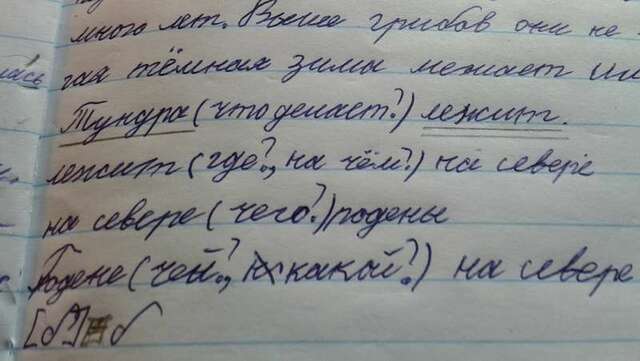 много лет. Выше грибов они не
гая тёмная зима мешает им
лась
Тундра (что делает?) лежит.
лежит (где?, на чём?) на севере
на севере (чего?) родены
Родене (чей?, какой?) на севере
[б] б